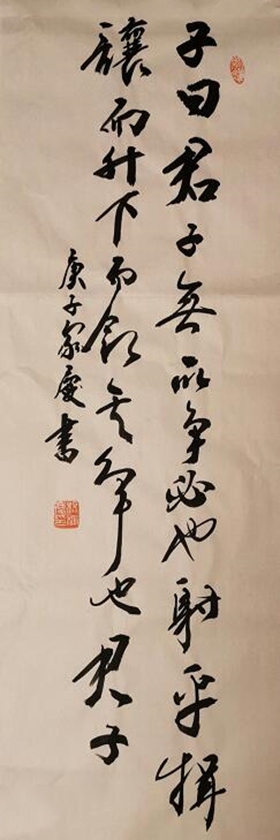 子曰君子無所争必也射乎揖
讓而升下而飲其争也君子
庚子家慶書